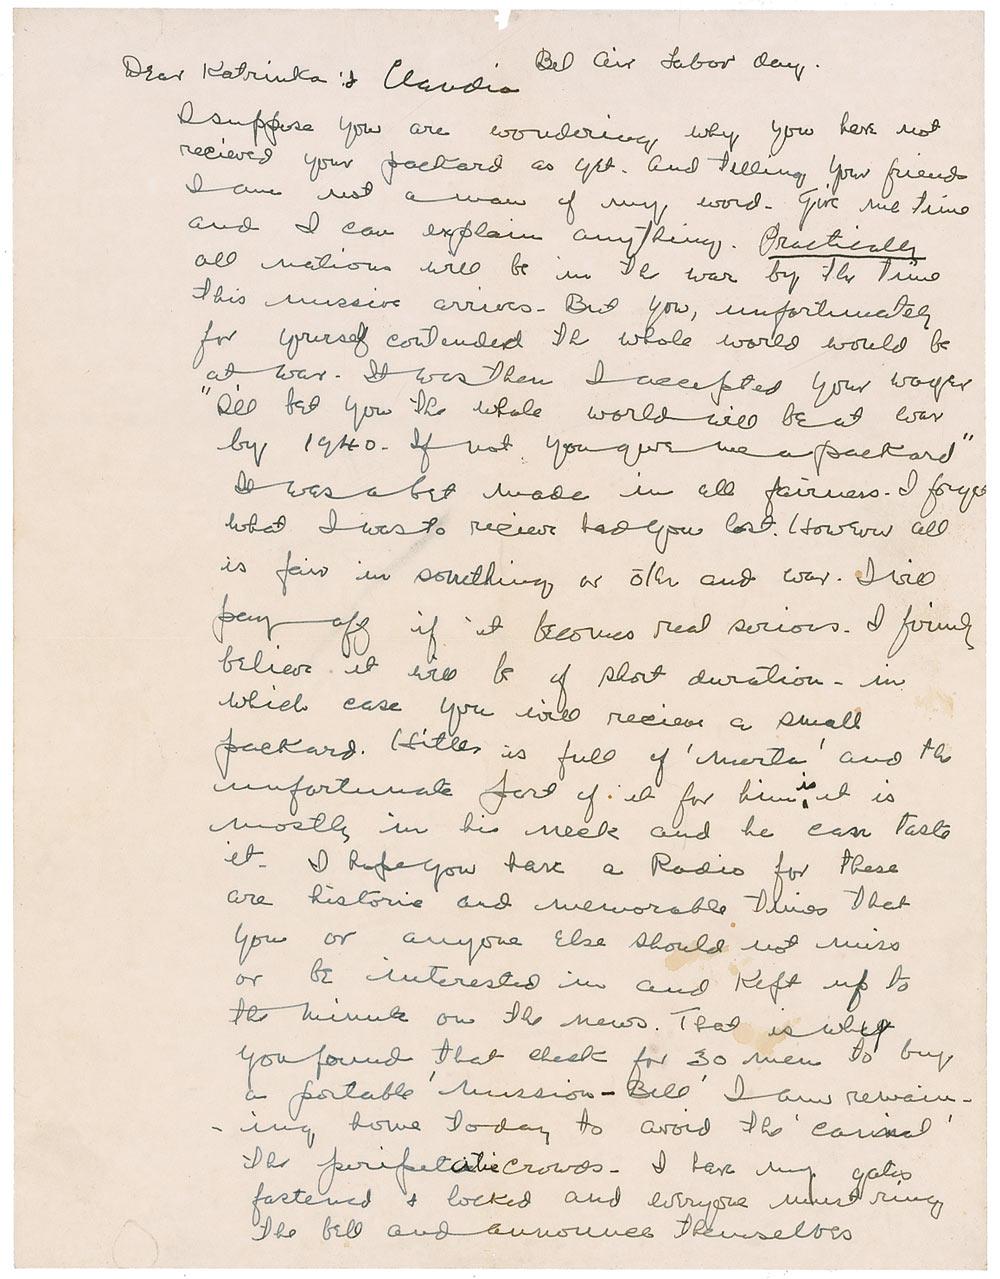 Bel Air Labor day.
Dear Katrinka & Claudia
I suppose you are wondering why you have not
recieved your packard as yet. And telling your friends
I am not a man of my word - Give me time
and I can explain anything. Practically
all nations will be in the war by the time
this missive arrives - But you, unfortunately
for yourself contended the whole world would be
at war - It was then I accepted your wager
"I'll bet you the whole world will be at war
by 1940 - If not you give me a packard"
It was a bet made in all fairness - I forget
what I was to recieve had you lost. However all
is fair in something or other and war - I will
pay off if it becomes real serious - I firmly
believe it will be of short duration - in
which case you will recieve a small
packard. Hitler is full of 'merta' and the
unfortunate part of it for him is, it is
mostly in his neck and he can taste
it - I hope you have a Radio for these
are historic and memorable times that
you or anyone else should not miss
or be interested in and kept up to
the minute on the news. That is why
you found that check for 30 men to buy
a portable 'mission-Bell' I am remain-
-ing home today to avoid the 'carnival'
the peripatetic crowds - I have my gates
fastened & locked and everyone must ring
the bell and announce themselves